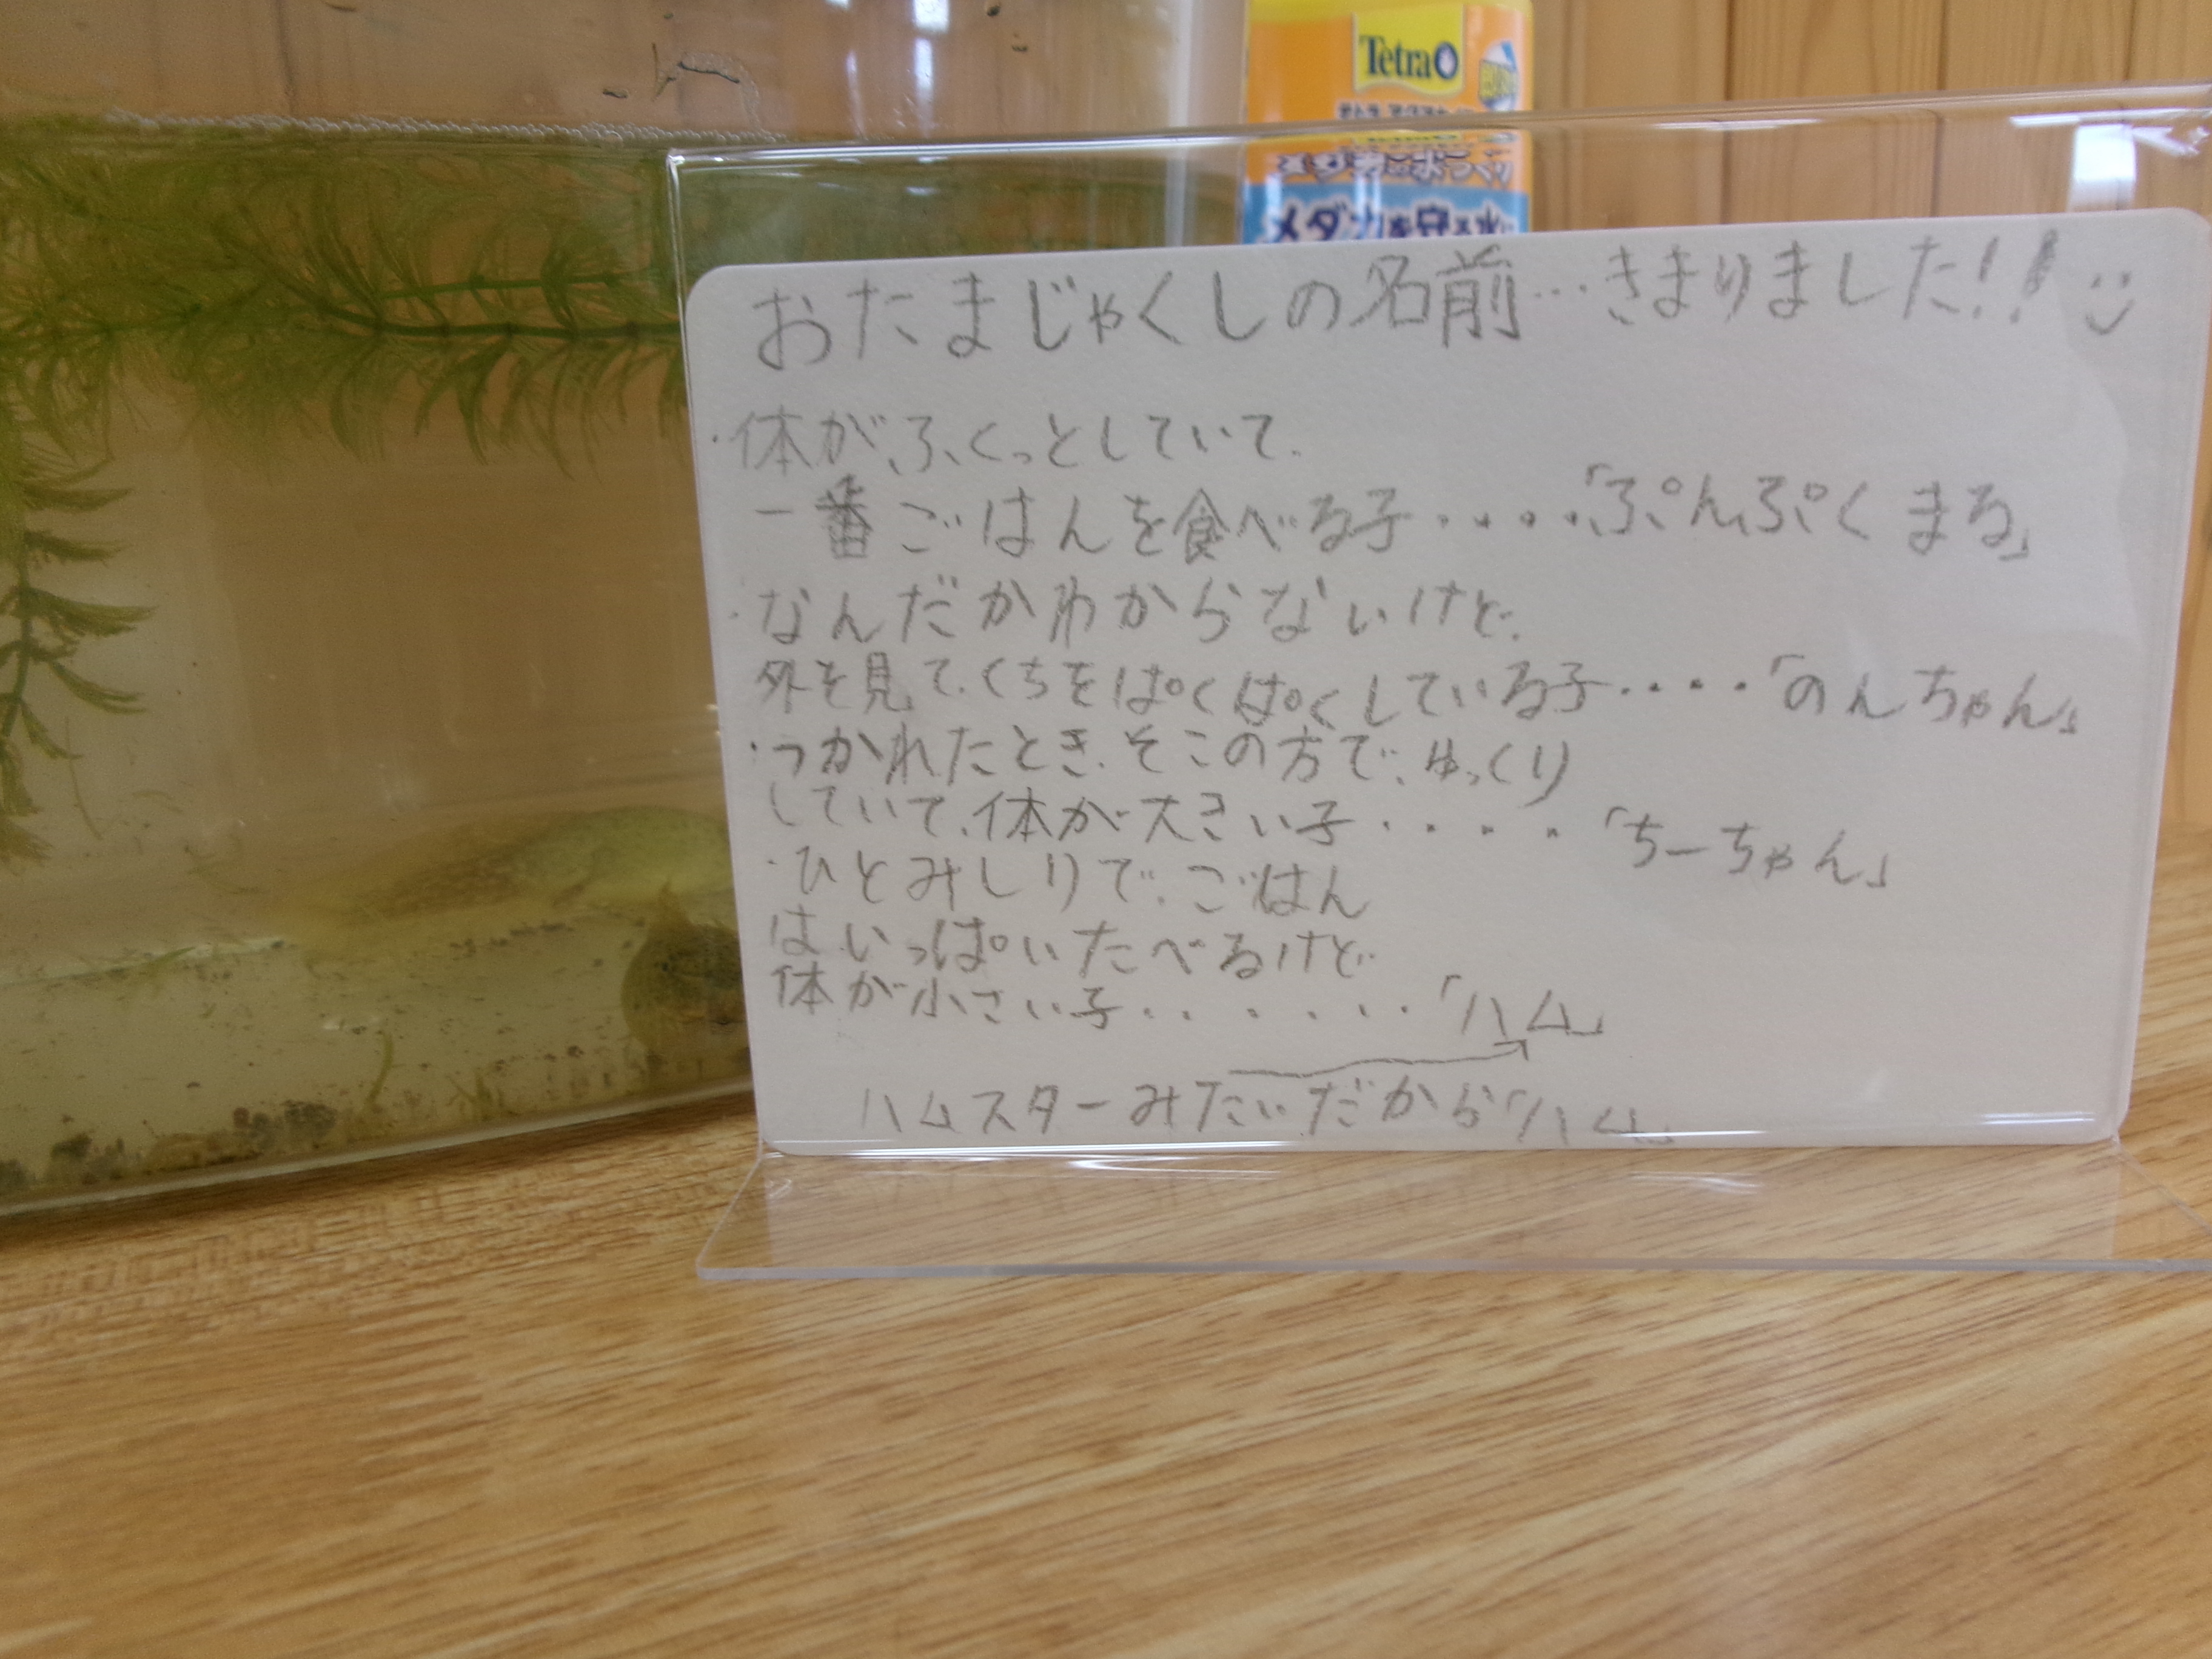 Tetra
メダカを守る水に
おたまじゃくしの名前…きまりました!!
・体がふくっとしていて、
一番ごはんを食べる子・・・・「ぷんぷくまる」
・なんだかわからないけど、
外を見て、くちをぱくぱくしている子・・・・「のんちゃん」
・つかれたとき、そこの方で、ゆっくり
していて、体が大きい子・・・・「ちーちゃん」
・ひとみしりで、ごはん
はいっぱいたべるけど
体が小さい子・・・・・・・「ハム」
ハムスターみたいだから「ハム」